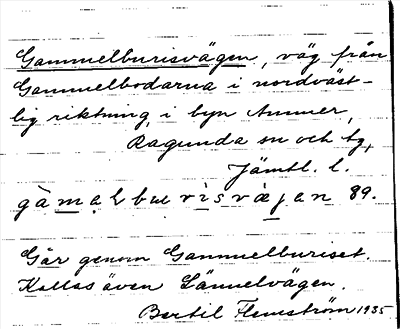 Gammelburisvägen, väg från
Gammelbodarna i nordväst-
lig riktning i byn Ammer,
Ragunda sn och tg,
Jämtl. l.
gàmaLbuvisvæjan 89.
Går genom Gammelburiset.
Kallas även Lännelvägen.
Bertil Flemström 1935